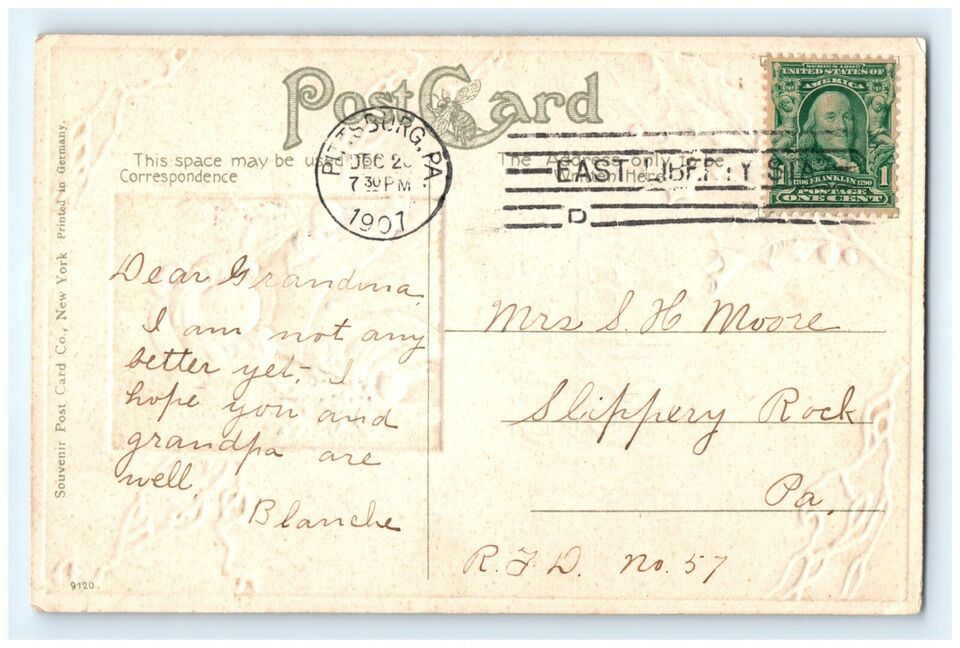 Post Card
This space may be used for
Correspondence
The Address only to be
Written Here
PITTSBURG, PA.
DEC 2
7 30 PM
1907
EAST LIBERTY STA
D
SERIES 1902
UNITED STATES OF
AMERICA
1706 FRANKLIN 1790
1 1
POSTAGE
ONE CENT
Souvenir Post Card Co., New York Printed in Germany.
Dear Grandma,
I am not any
better yet, I
hope you and
grandpa are
well.
Blanche
Mrs S. H Moore
Slippery Rock
Pa.
R.F.D. No. 57
9120.